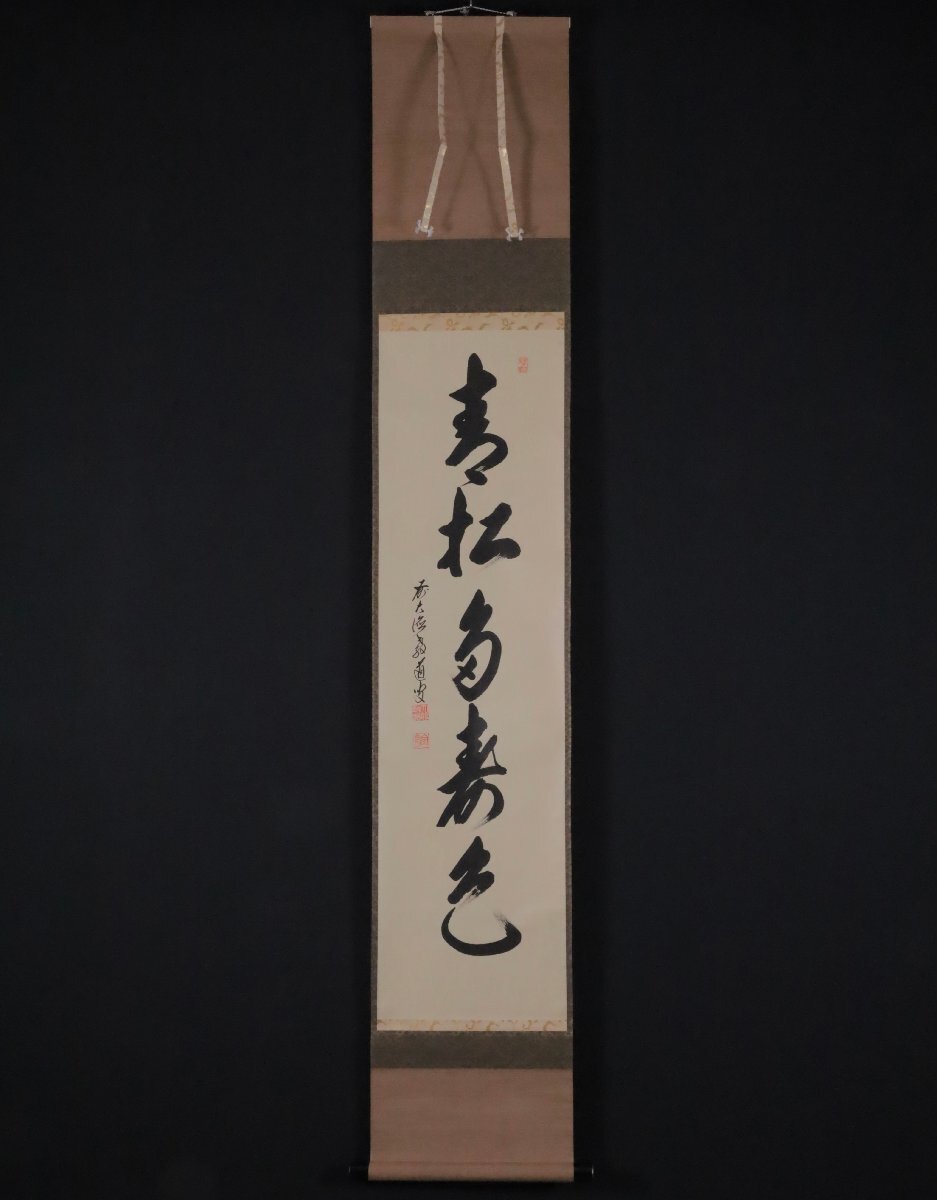 青松多寿色
前大徳